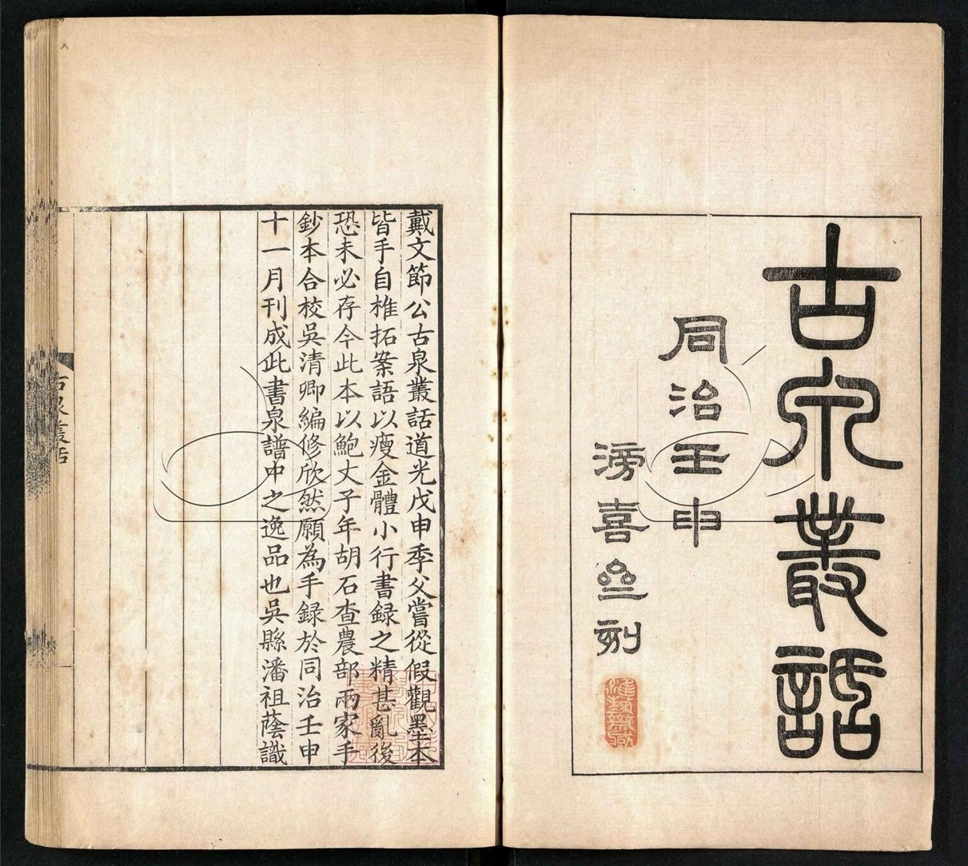 古泉叢話
同治壬申
滂喜亝刻
戴文節公古泉叢話道光戊申季父嘗從假觀墨本
皆手自椎拓案語以瘦金體小行書録之精甚亂後
恐未必存今此本以鮑丈子年胡石查農部兩家手
鈔本合校吳清卿編修欣然願為手録於同治壬申
十一月刊成此書泉譜中之逸品也吳縣潘祖蔭識
古泉叢話